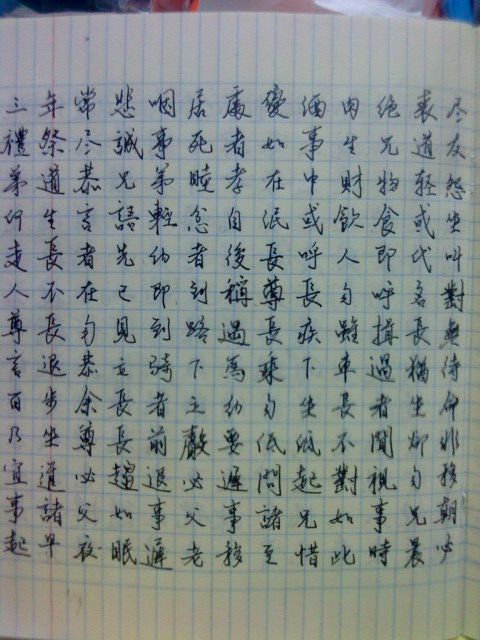 三年常悲咽居處變酒肉絕喪尽
禮祭尽誠事死者如事生兄道友
弟道恭兄弟睦孝在中財物輕怨
何生言語輕忿自泯或飲食或坐
走長者先幼者後長呼人即代叫
人不在己即到稱尊長勿呼名對
尊長勿見到路遇長疾雖揖長無
言退恭立騎下馬乘下車過猶待
百步余長者立幼勿坐長者坐命
乃坐尊長前聲要低低不聞卻非
宜道必趨退必遲問起對視勿移
事諸父如事父事諸兄如事兄朝
起早夜眠遲老移至惜此時晨必